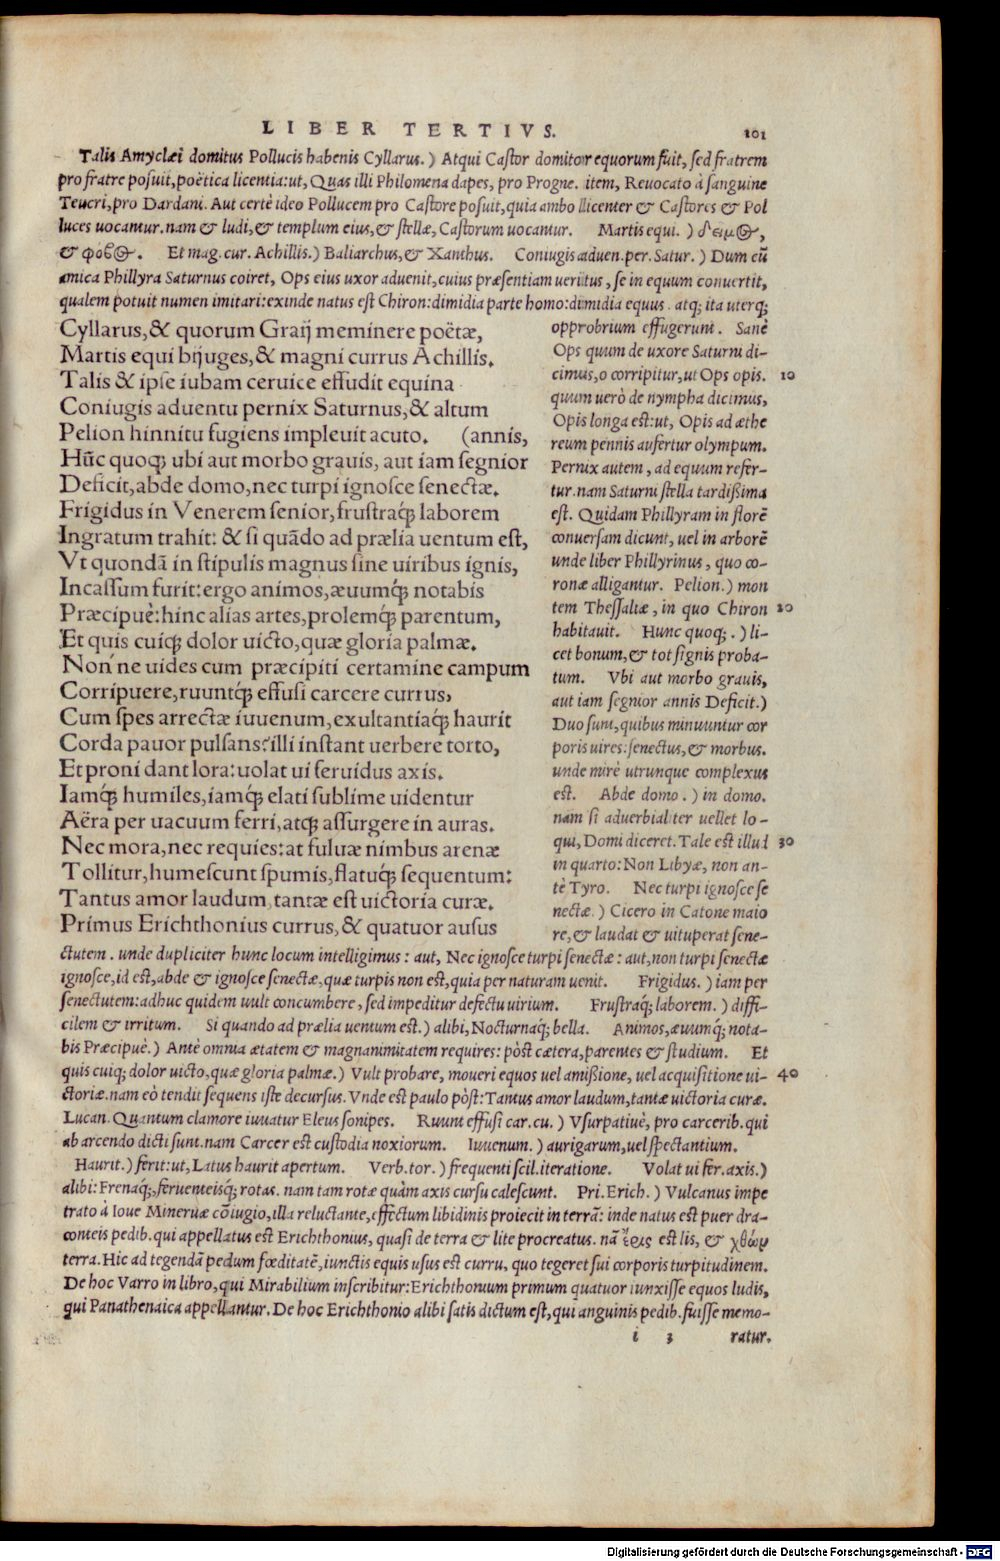 LIBER TERTIVS. 101
Talis Amyclæi domitus Pollucis habenis Cyllarus.) Atqui Castor domitor equorum fuit, sed fratrem
pro fratre posuit, poëtica licentia: ut, Quas illi Philomena dapes, pro Progne. item, Reuocato à sanguine
Teucri, pro Dardani. Aut certè ideo Pollucem pro Castore posuit, quia ambo licenter & Castores & Pol
luces uocantur. nam & ludi, & templum eius, & stellæ, Castorum uocantur. Martis equi.) δειμος,
& φόβος. Et mag. cur. Achillis.) Baliarchus, & Xanthus. Coniugis aduen. per. Satur.) Dum cū
amica Phillyra Saturnus coiret, Ops eius uxor aduenit, cuius præsentiam ueritus, se in equum conuertit,
qualem potuit numen imitari: exinde natus est Chiron: dimidia parte homo: dimidia equus. atq; ita uterq;
Cyllarus, & quorum Graij meminere poëtæ,
Martis equi bijuges, & magni currus Achillis.
Talis & ipse iubam ceruice effudit equina
Coniugis aduentu pernix Saturnus, & altum
Pelion hinnitu fugiens impleuit acuto. (annis,
Hūc quoq; ubi aut morbo grauis, aut iam segnior
Deficit, abde domo, nec turpi ignosce senectæ.
Frigidus in Venerem senior, frustraq́; laborem
Ingratum trahit: & si quādo ad prælia uentum est,
Vt quondā in stipulis magnus sine uiribus ignis,
Incassum furit: ergo animos, æuumq́; notabis
Præcipuè: hinc alias artes, prolemq́; parentum,
Et quis cuiq; dolor uicto, quæ gloria palmæ.
Non ne uides cum præcipiti certamine campum
Corripuere, ruuntq́; effusi carcere currus,
Cum spes arrectæ iuuenum, exultantiaq́; haurit
Corda pauor pulsans? illi instant uerbere torto,
Et proni dant lora: uolat ui feruidus axis.
Iamq́; humiles, iamq́; elati sublime uidentur
Aëra per uacuum ferri, atq; assurgere in auras.
Nec mora, nec requies: at fuluæ nimbus arenæ
Tollitur, humescunt spumis, flatuq́; sequentum:
Tantus amor laudum, tantæ est uictoria curæ.
Primus Erichthonius currus, & quatuor ausus
opprobrium effugerunt. Sanè
Ops quum de uxore Saturni di-
cimus, o corripitur, ut Ops opis. 10
quum uerò de nympha dicimus,
Opis longa est: ut, Opis ad æthe
reum pennis aufertur olympum.
Pernix autem, ad equum refer-
tur. nam Saturni stella tardißima
est. Quidam Phillyram in florē
conuersam dicunt, uel in arborē
unde liber Phillyrinus, quo co-
ronæ alligantur. Pelion.) mon
tem Thessaliæ, in quo Chiron 20
habitauit. Hunc quoq;.) li-
cet bonum, & tot signis proba-
tum. Vbi aut morbo grauis,
aut iam segnior annis Deficit.)
Duo sunt, quibus minuuntur cor
poris uires: senectus, & morbus.
unde mirè utrunque complexus
est. Abde domo.) in domo.
nam si aduerbialiter uellet lo-
qui, Domi diceret. Tale est illud 30
in quarto: Non Libyæ, non an-
tè Tyro. Nec turpi ignosce se
nectæ.) Cicero in Catone maio
re, & laudat & uituperat sene-
ctutem. unde dupliciter hunc locum intelligimus: aut, Nec ignosce turpi senectæ: aut, non turpi senectæ
ignosce, id est, abde & ignosce senectæ, quæ turpis non est, quia per naturam uenit. Frigidus.) iam per
senectutem: adhuc quidem uult concumbere, sed impeditur defectu uirium. Frustraq́; laborem.) diffi-
cilem & irritum. Si quando ad prælia uentum est.) alibi, Nocturnaq́; bella. Animos, æuumq́; nota-
bis Præcipuè.) Antè omnia ætatem & magnanimitatem requires: pòst cætera, parentes & studium. Et
quis cuiq; dolor uicto, quæ gloria palmæ.) Vult probare, moueri equos uel amißione, uel acquisitione ui- 40
ctoriæ. nam eò tendit sequens iste decursus. Vnde est paulo pòst: Tantus amor laudum, tantæ uictoria curæ.
Lucan. Quantum clamore iuuatur Eleus sonipes. Ruunt effusi car. cu.) Vsurpatiuè, pro carcerib. qui
ab arcendo dicti sunt. nam Carcer est custodia noxiorum. Iuuenum.) aurigarum, uel spectantium.
Haurit.) ferit: ut, Latus haurit apertum. Verb. tor.) frequenti scil. iteratione. Volat ui fer. axis.)
alibi: Frenaq́;, feruenteisq́; rotas. nam tam rotæ quàm axis cursu calescunt. Pri. Erich.) Vulcanus impe
trato à Ioue Mineruæ cōiugio, illa reluctante, effectum libidinis proiecit in terrā: inde natus est puer dra-
conteis pedib. qui appellatus est Erichthonius, quasi de terra & lite procreatus. nā ἔρις est lis, & χθὼν
terra. Hic ad tegendā pedum fœditatē, iunctis equis usus est curru, quo tegeret sui corporis turpitudinem.
De hoc Varro in libro, qui Mirabilium inscribitur: Erichthonium primum quatuor iunxisse equos ludis,
qui Panathenaica appellantur. De hoc Erichthonio alibi satis dictum est, qui anguinis pedib. fuisse memo-
i 3 ratur.
Digitalisierung gefördert durch die Deutsche Forschungsgemeinschaft - DFG